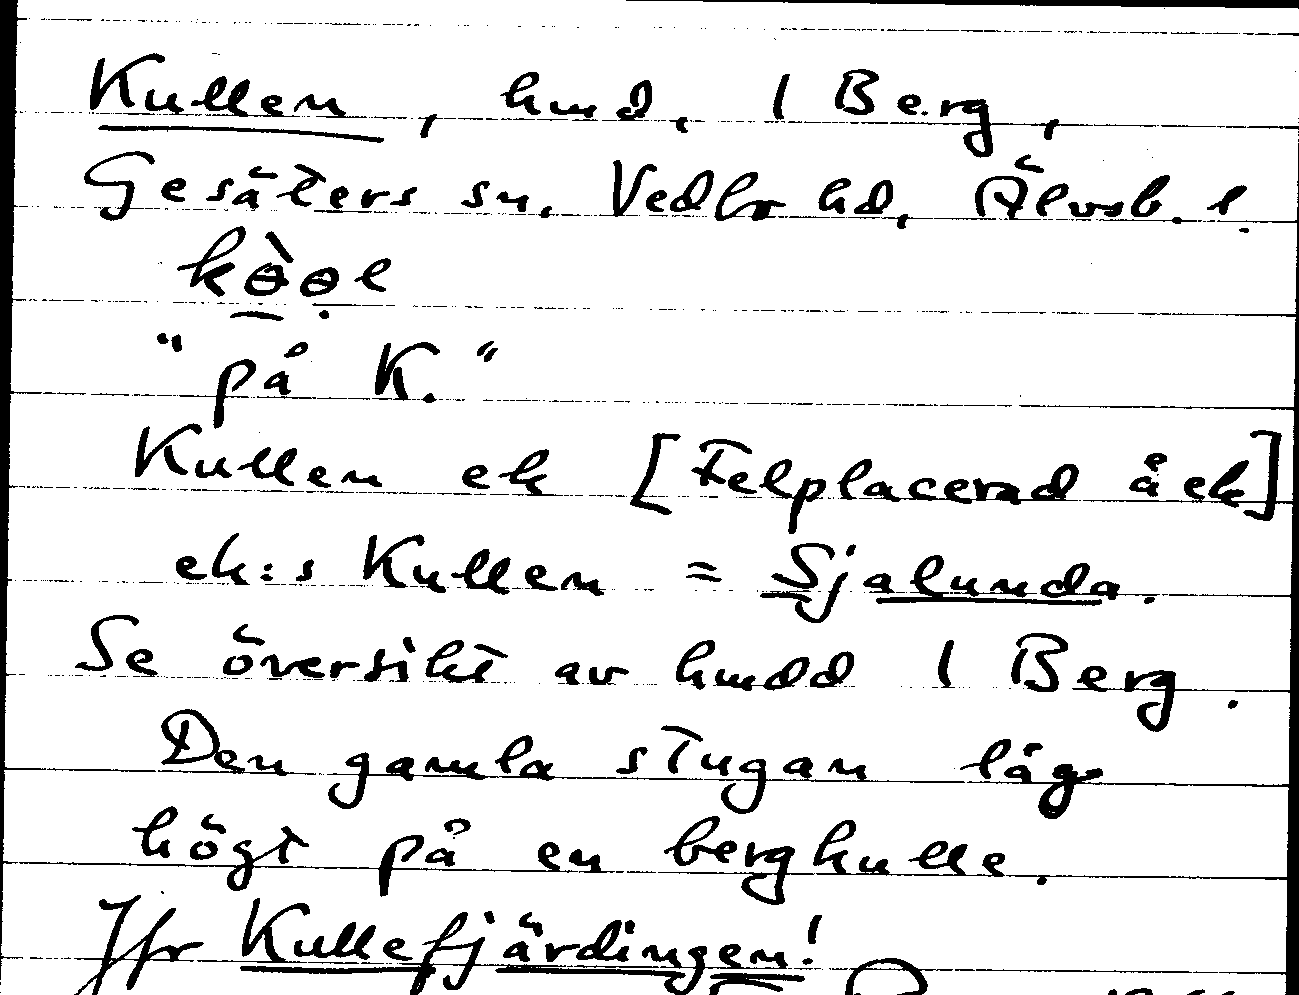 Kullen, hmd, 1 Berg,
Gesäters sn. Vedbo hd, Älvsb. l.
"på K."
Kullen ek [Felplacerad å ek]
ek:s Kullen = Sjalunda.
Se översikt av hmdd 1 Berg.
Den gamla stugan låg
högt på en bergkulle.
Jfr Kullefjärdingen!